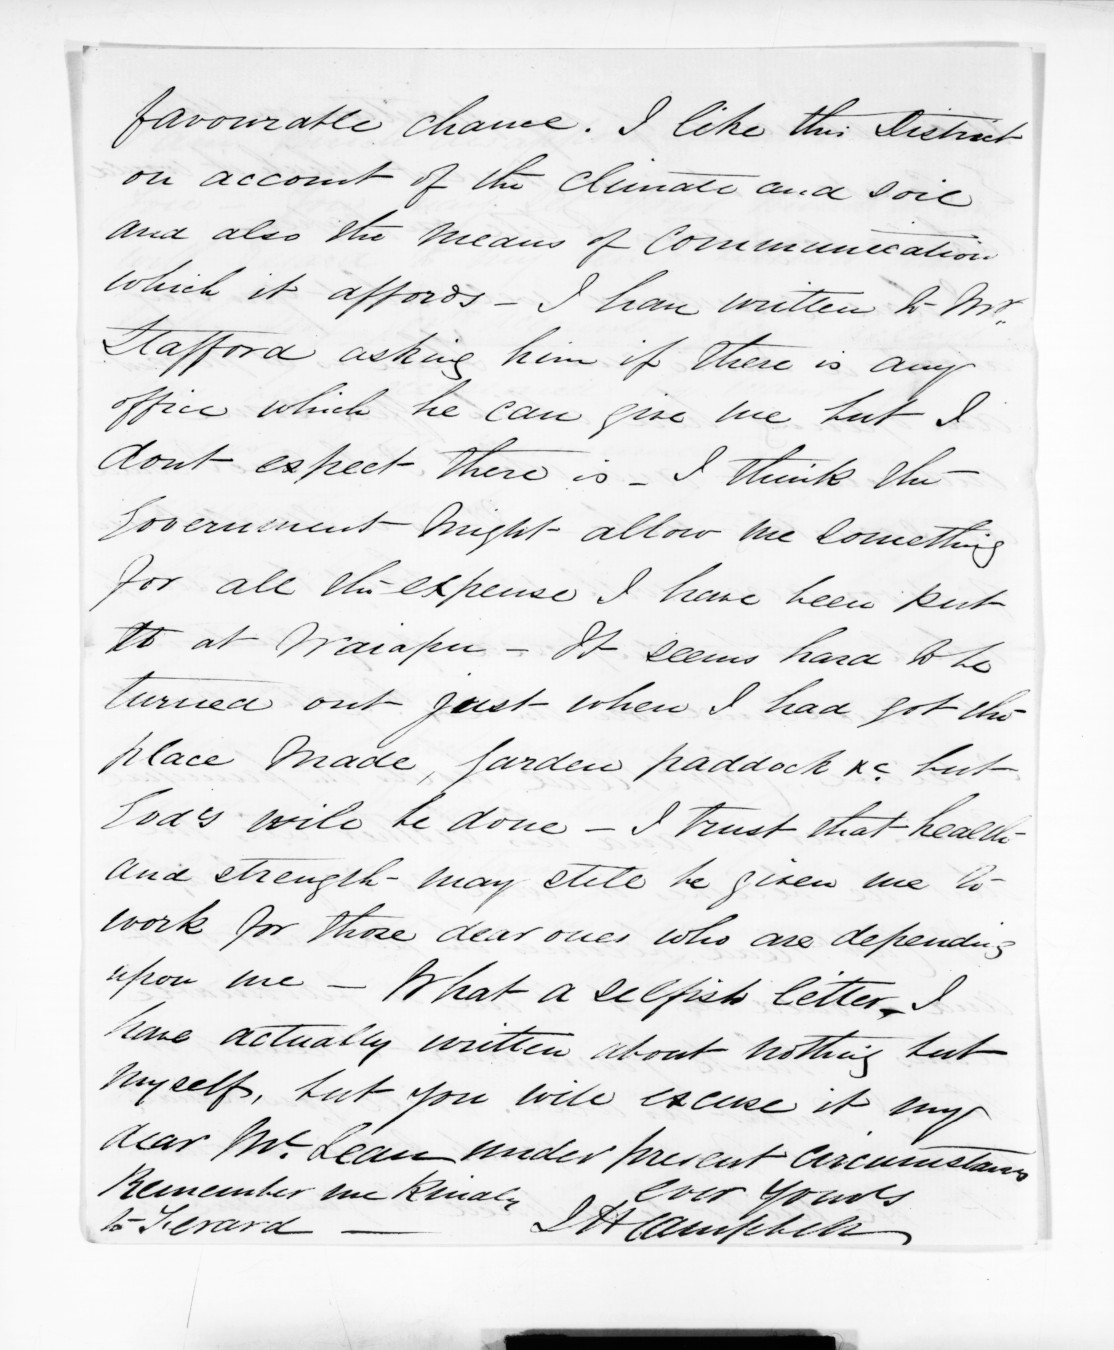 favourable chance. I like this District
on account of the climate and soil
and also the means of communication
which it affords - I have written to Mr.
Stafford asking him if there is any
office which he can give me but I
dont expect there is - I think the
Government might allow me something
for all the expense I have been put
to at Waiapu - It seems hard to be
turned out just when I had got the
place made, garden paddock &c but
God's will be done - I trust that health
and strength may still be given me to
work for those dear ones who are depending
upon me - What a selfish letter, I
have actually written about nothing but
myself, but you will excuse it my
dear McLean under present circumstances
Remember me kindly ever yours
to Gerard - J H Campbell